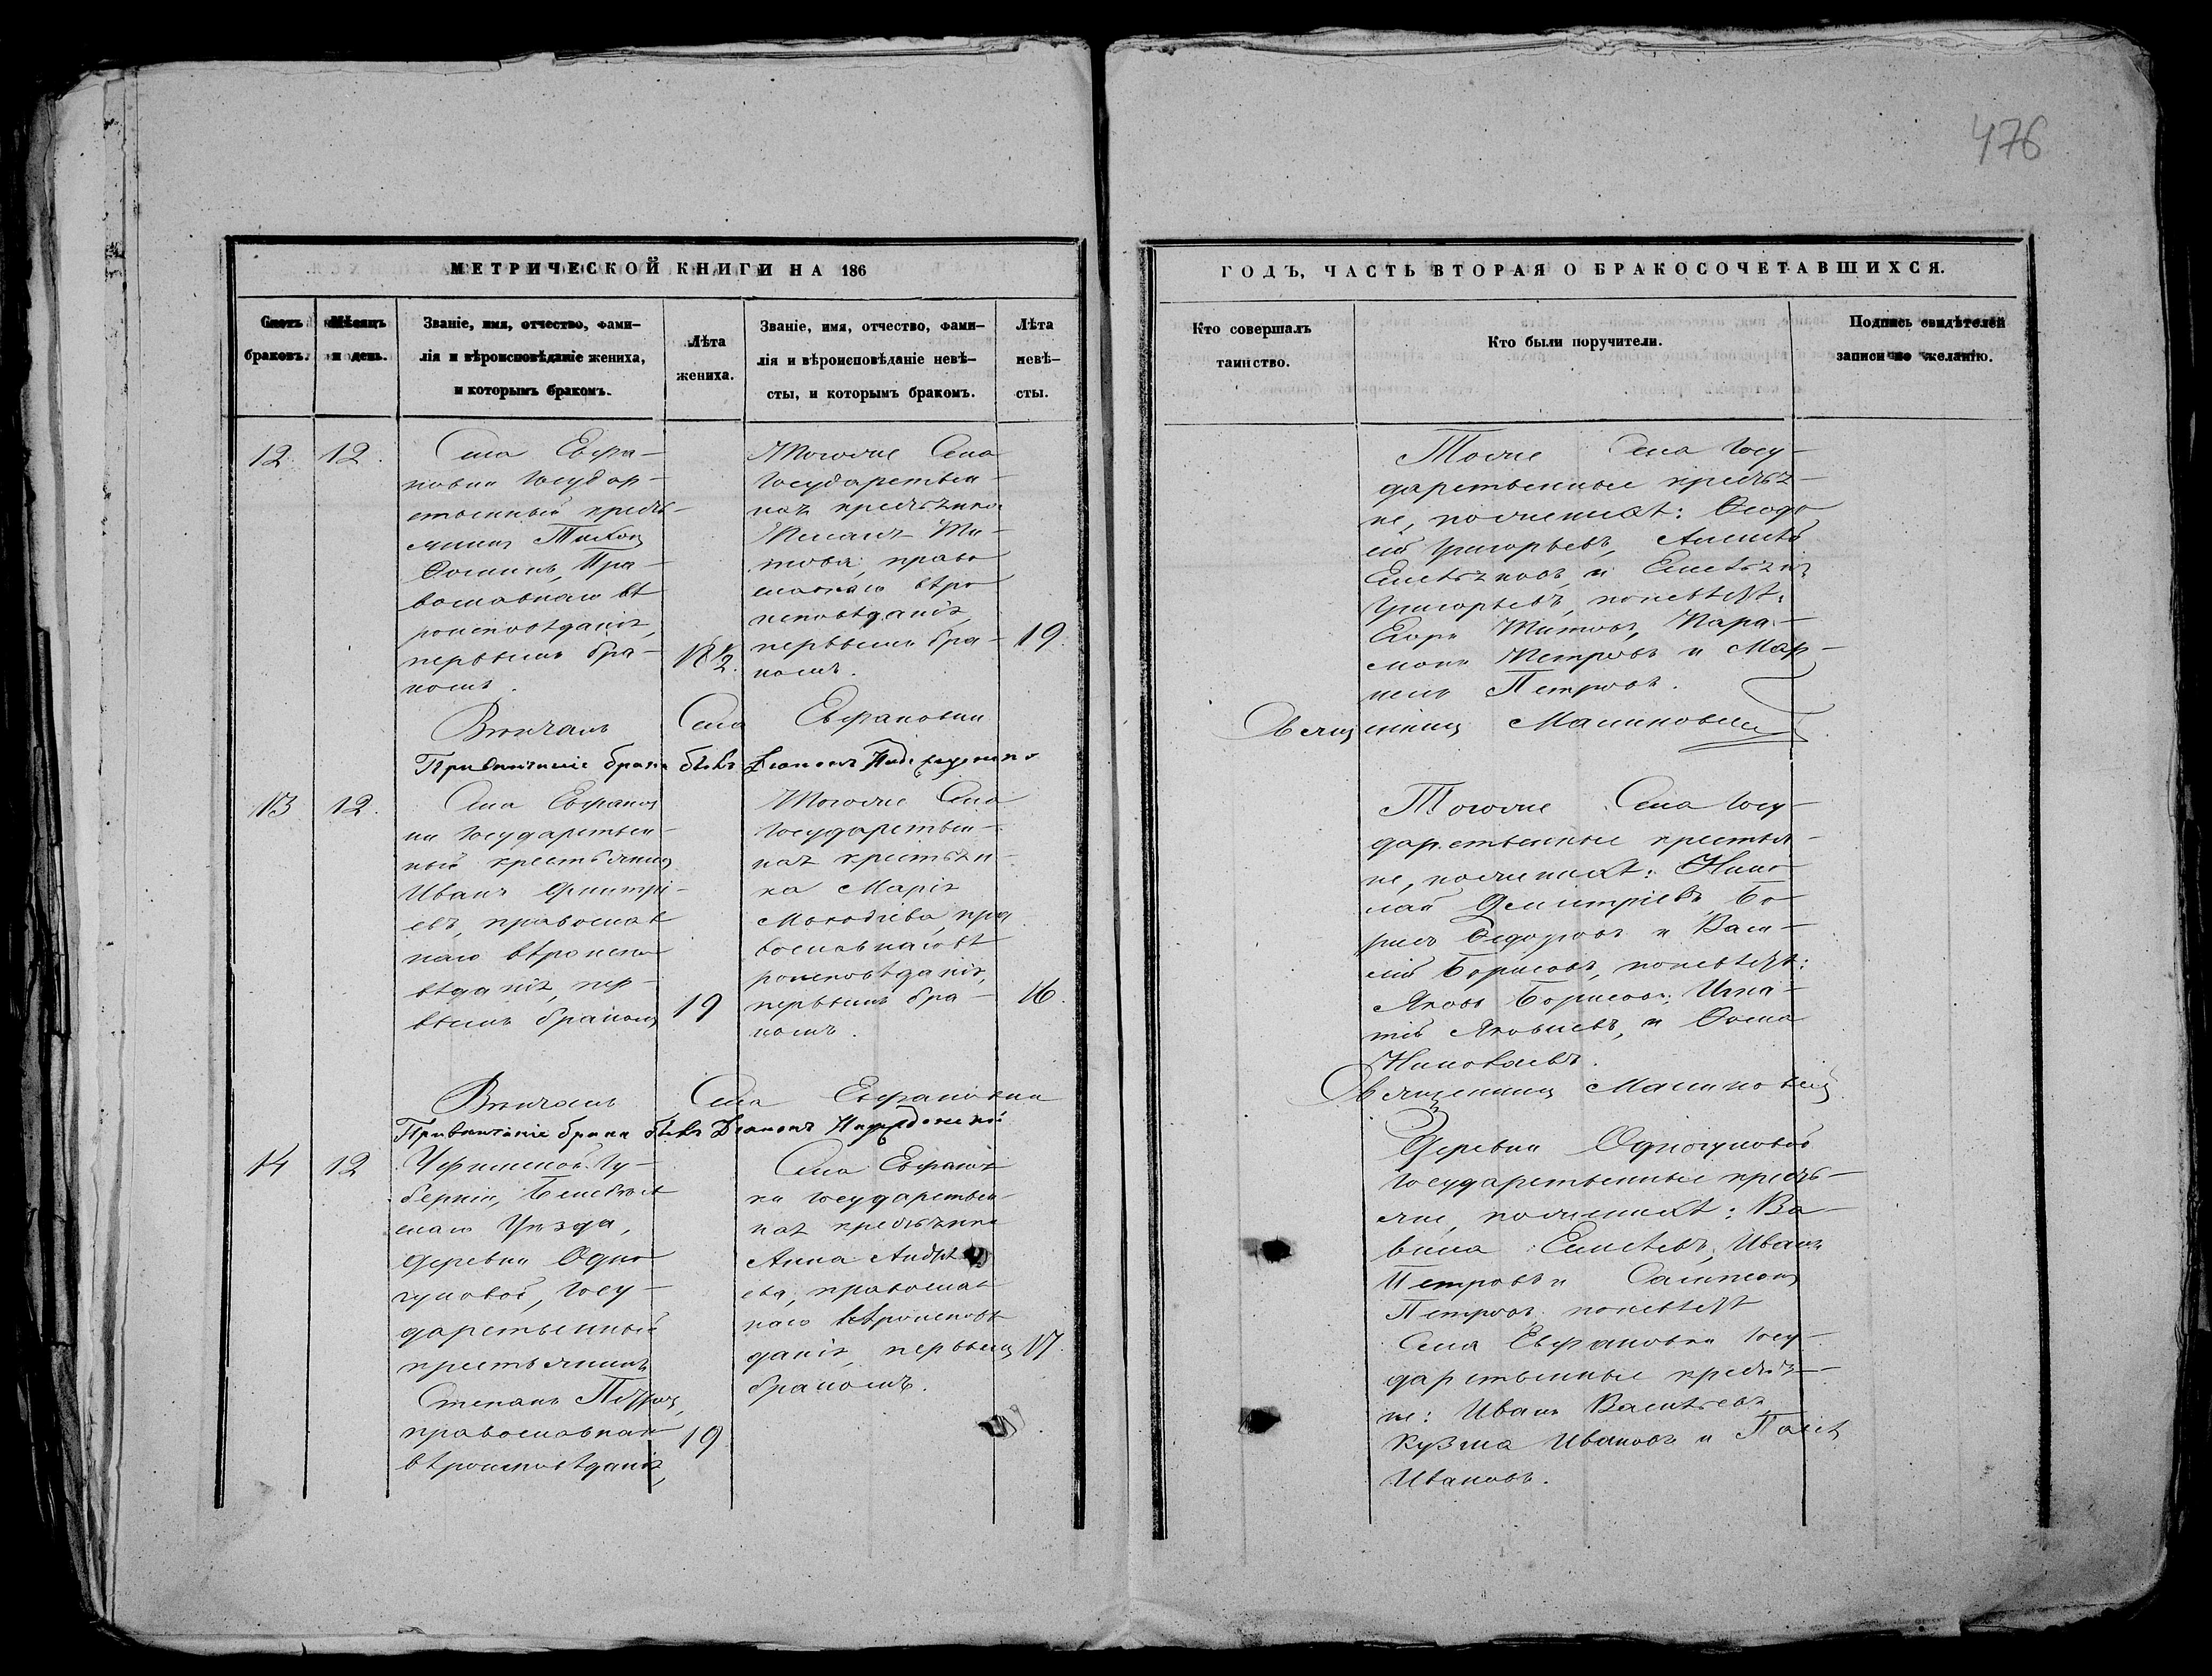 476
МЕТРИЧЕСКОЙ КНИГИ НА 186
Счетъ браковъ.
Мѣсяцъ и день.
Званіе, имя, отчество, фами-
лія и вѣроисповѣданіе жениха,
и которымъ бракомъ.
Лѣта
жениха.
Званіе, имя, отчество, фами-
лія и вѣроисповѣданіе невѣ-
сты, и которымъ бракомъ.
Лѣта
невѣ-
сты.
12.
12.
Села Евфа-
новки Государ-
ственный кресть-
янинъ Тихон
Фоминъ, Пра-
вославнаго вѣ
роисповѣданія,
первымъ бра-
комъ.
18 1/2.
Тогоже Села
Государствен-
ная крестьянка
Ти-
това, право
славнаго вѣро
исповѣданія,
первымъ бра-
комъ.
19.
Вѣнчанъ Села Евфановки
При вѣнчаніе брака былъ Діаконъ
13
12.
Села Евфанов
ки Государствен-
ный крестьянин
Иванъ Дмитрі-
евъ, православ
наго вѣроиспо
вѣданія, пер-
вымъ браком
19
Тогоже Села
Государствен-
ная крестьян-
ка Марія
пра
вославнаго вѣ
роисповѣданія,
первымъ бра-
комъ.
16.
Вѣнчанъ Села Евфановки
При вѣнчаніе брака былъ Діаконъ
14
12
Гу-
берніи,
скаго Уѣзда,
деревни Одно
луковой, Госу-
дарственный
крестьянинъ
Степанъ Петров,
православнаго
вѣроисповѣданія,
19
Села Евфанов
ки Государствен-
ная крестьянка
Анна Андрѣ
ева, православ
наго вѣроисповѣ
данія, первым
бракомъ.
17.
ГОДЪ, ЧАСТЬ ВТОРАЯ О БРАКОСОЧЕТАВШИХСЯ.
Кто совершалъ
таинство.
Кто были поручители.
Подпись свидѣтелей
записи по желанію.
Тоже Села Госу-
дарственные крестья-
не, по женихѣ: Феодо
сій Григорьевъ, Алексѣй
Емельяновъ, и Емельян
Григорьевъ, по невѣстѣ:
Егоръ Титовъ, Пара-
монъ Петровъ и Мар-
келъ Петровъ.
Священникъ Малиновскій
Тогоже Села Госу-
дарственные крестья-
не, по женихѣ: Нико-
лай Димитріевъ, Бо
рисъ Федоровъ и Васи-
лій Борисовъ, по невѣстѣ:
Яковъ Борисовъ, Игна-
тій Яковлевъ, и Фома
Николаевъ.
Священникъ Малиновскій
Деревни Однолуковой
Государственные кресть-
яне, по женихѣ: Ва-
вила Иванъ
Петровъ и Сампсон
Петровъ, по невѣстѣ
Села Евфановки Госу-
дарственные крестья-
не: Иванъ Васильевъ,
Кузма Ивановъ и
Ивановъ.